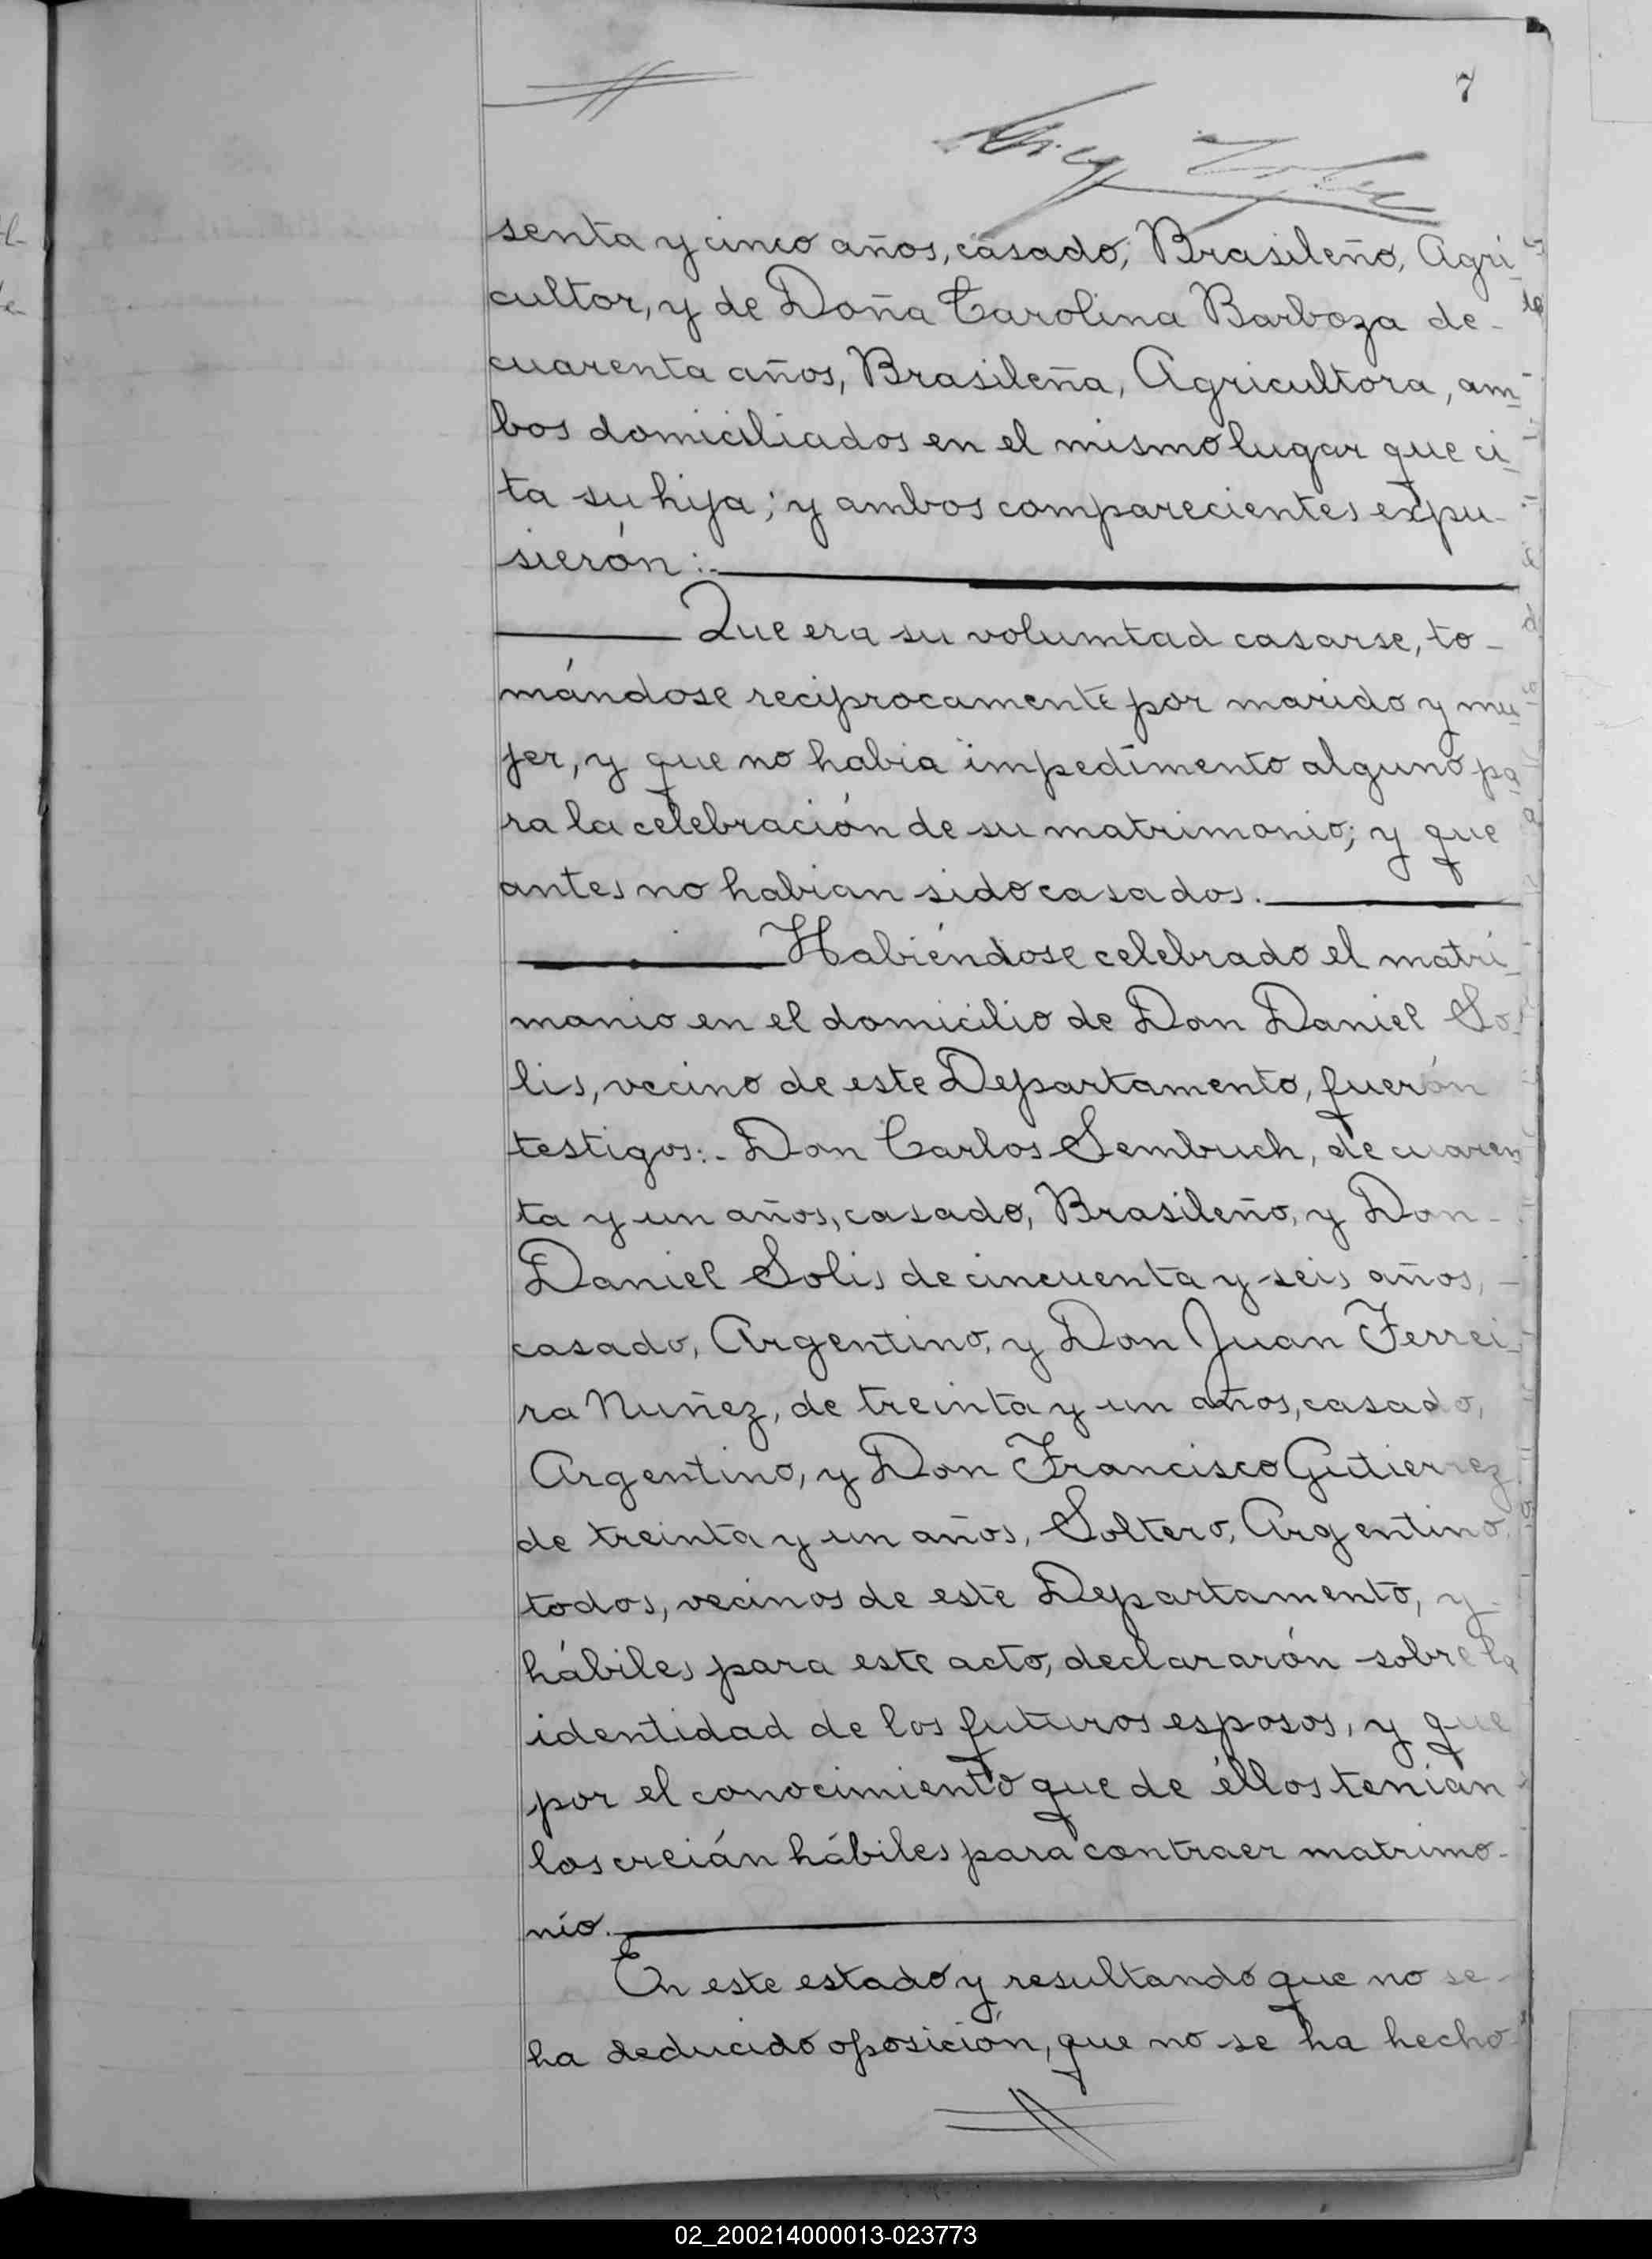 7
senta y cinco años, casado, Brasileño, Agri
cultor, y de Doña Carolina Barboza de-
cuarenta años, Brasileña, Agricultora, am
bos domiciliados en el mismo lugar que ci
ta su hija; y ambos comparecientes expu-
sierón:-
Que era su voluntad casarse, to-
mándose reciprocamente por marido y mu
jer, y que no habia impedimento alguno pa
ra la celebración de su matrimonio; y que
antes no habian sido casados.
Habiéndose celebrado el matri
monio en el domicilio de Don Daniel So
lis, vecino de este Departamento, fuerón
testigos:- Don Carlos Sembuch, de cuaren
ta y un años, casado, Brasileño, y Don-
Daniel Solis de cincuenta y seis años,-
casado, Argentino, y Don Juan Ferrei
ra Nuñez, de treinta y un años, casado,
Argentino, y Don Francisco Gutierrez
de treinta y un años, Soltero, Argentino,
todos, vecinos de este Departamento, y-
hábiles para este acto, declararón sobre la
identidad de los futuros esposos, y que
por el conocimiento que de éllos tenián
los creián hábiles para contraer matrimo-
nio.
En este estado y resultando que no se-
ha deducido oposición, que no se ha hecho
02_200214000013-023773